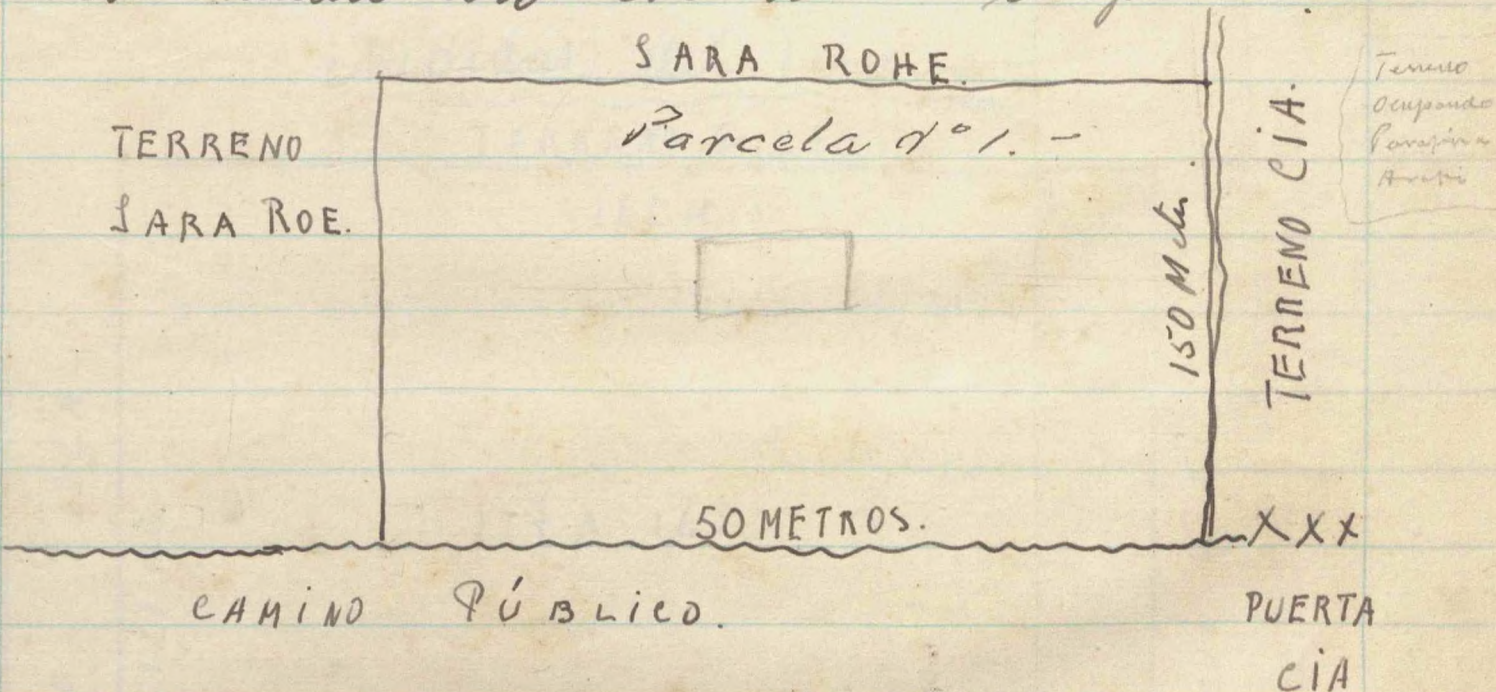 SARA ROHE.
Parcela Nº 1. -
TERRENO
SARA ROE.
150 Mts.
TERRENO CÍA.
Terreno
Ocupando
50 METROS.
XXX
CAMINO PÚBLICO.
PUERTA
CÍA